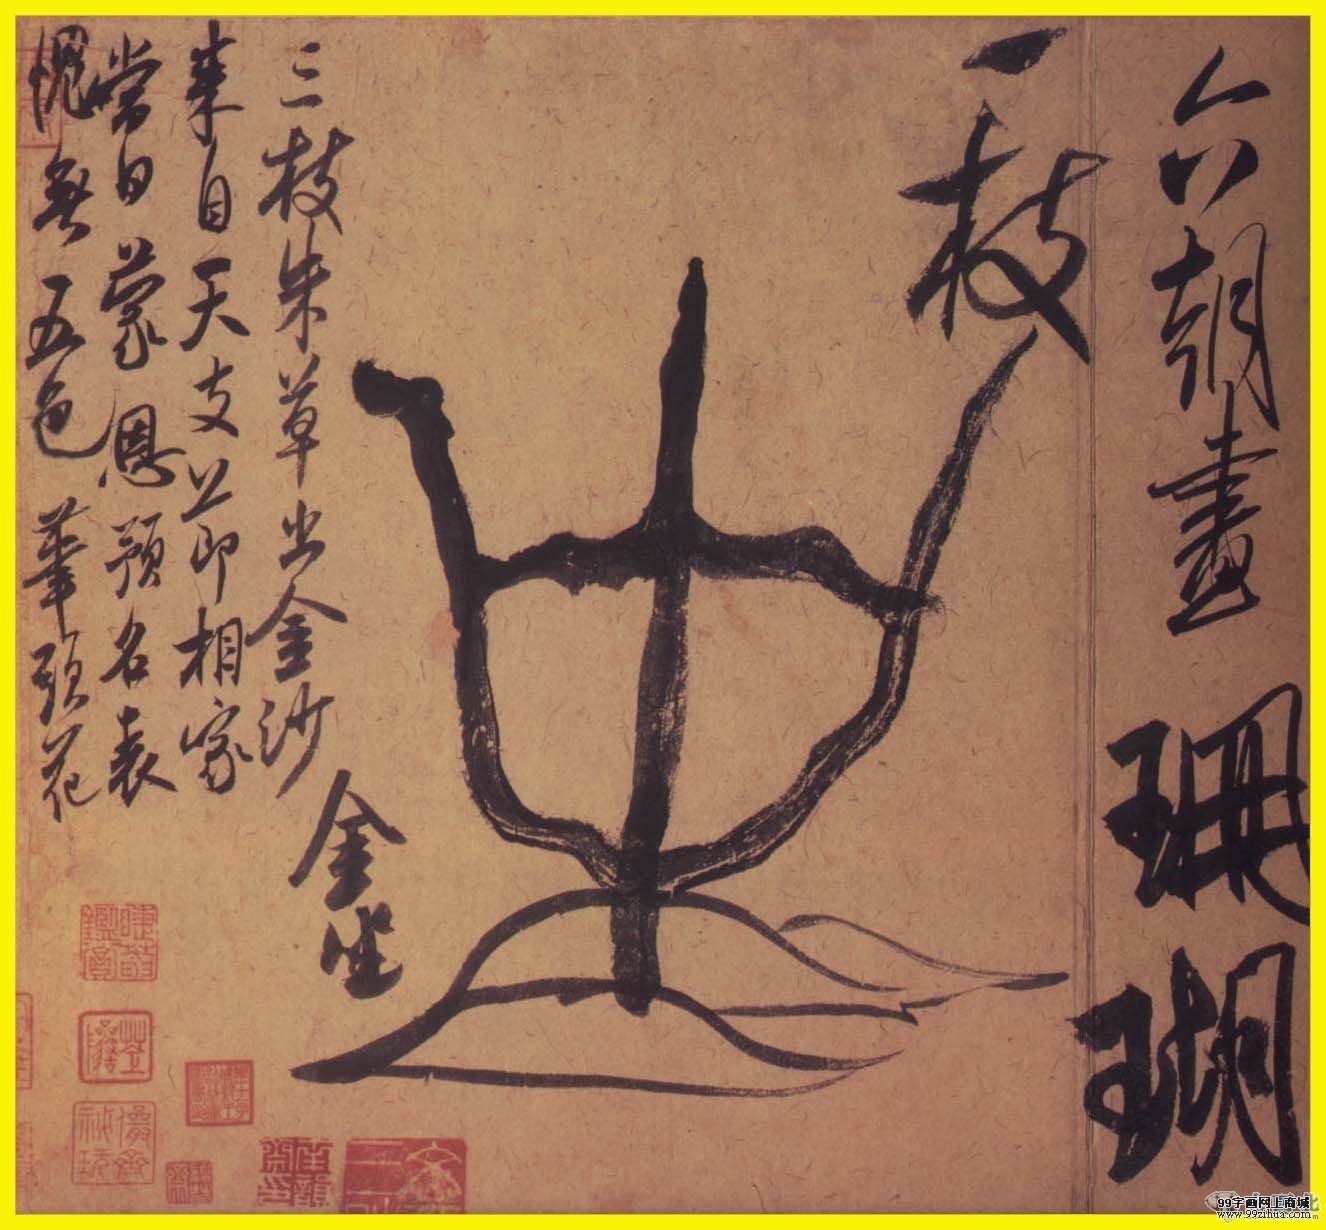 六朝畫珊瑚
一枝
金坐
三枝朱草出金沙
來自天支節相家
當日蒙恩預名表
愧無五色筆頭花
儼齋秘玩
99字画网上商城
www.99zihua.com